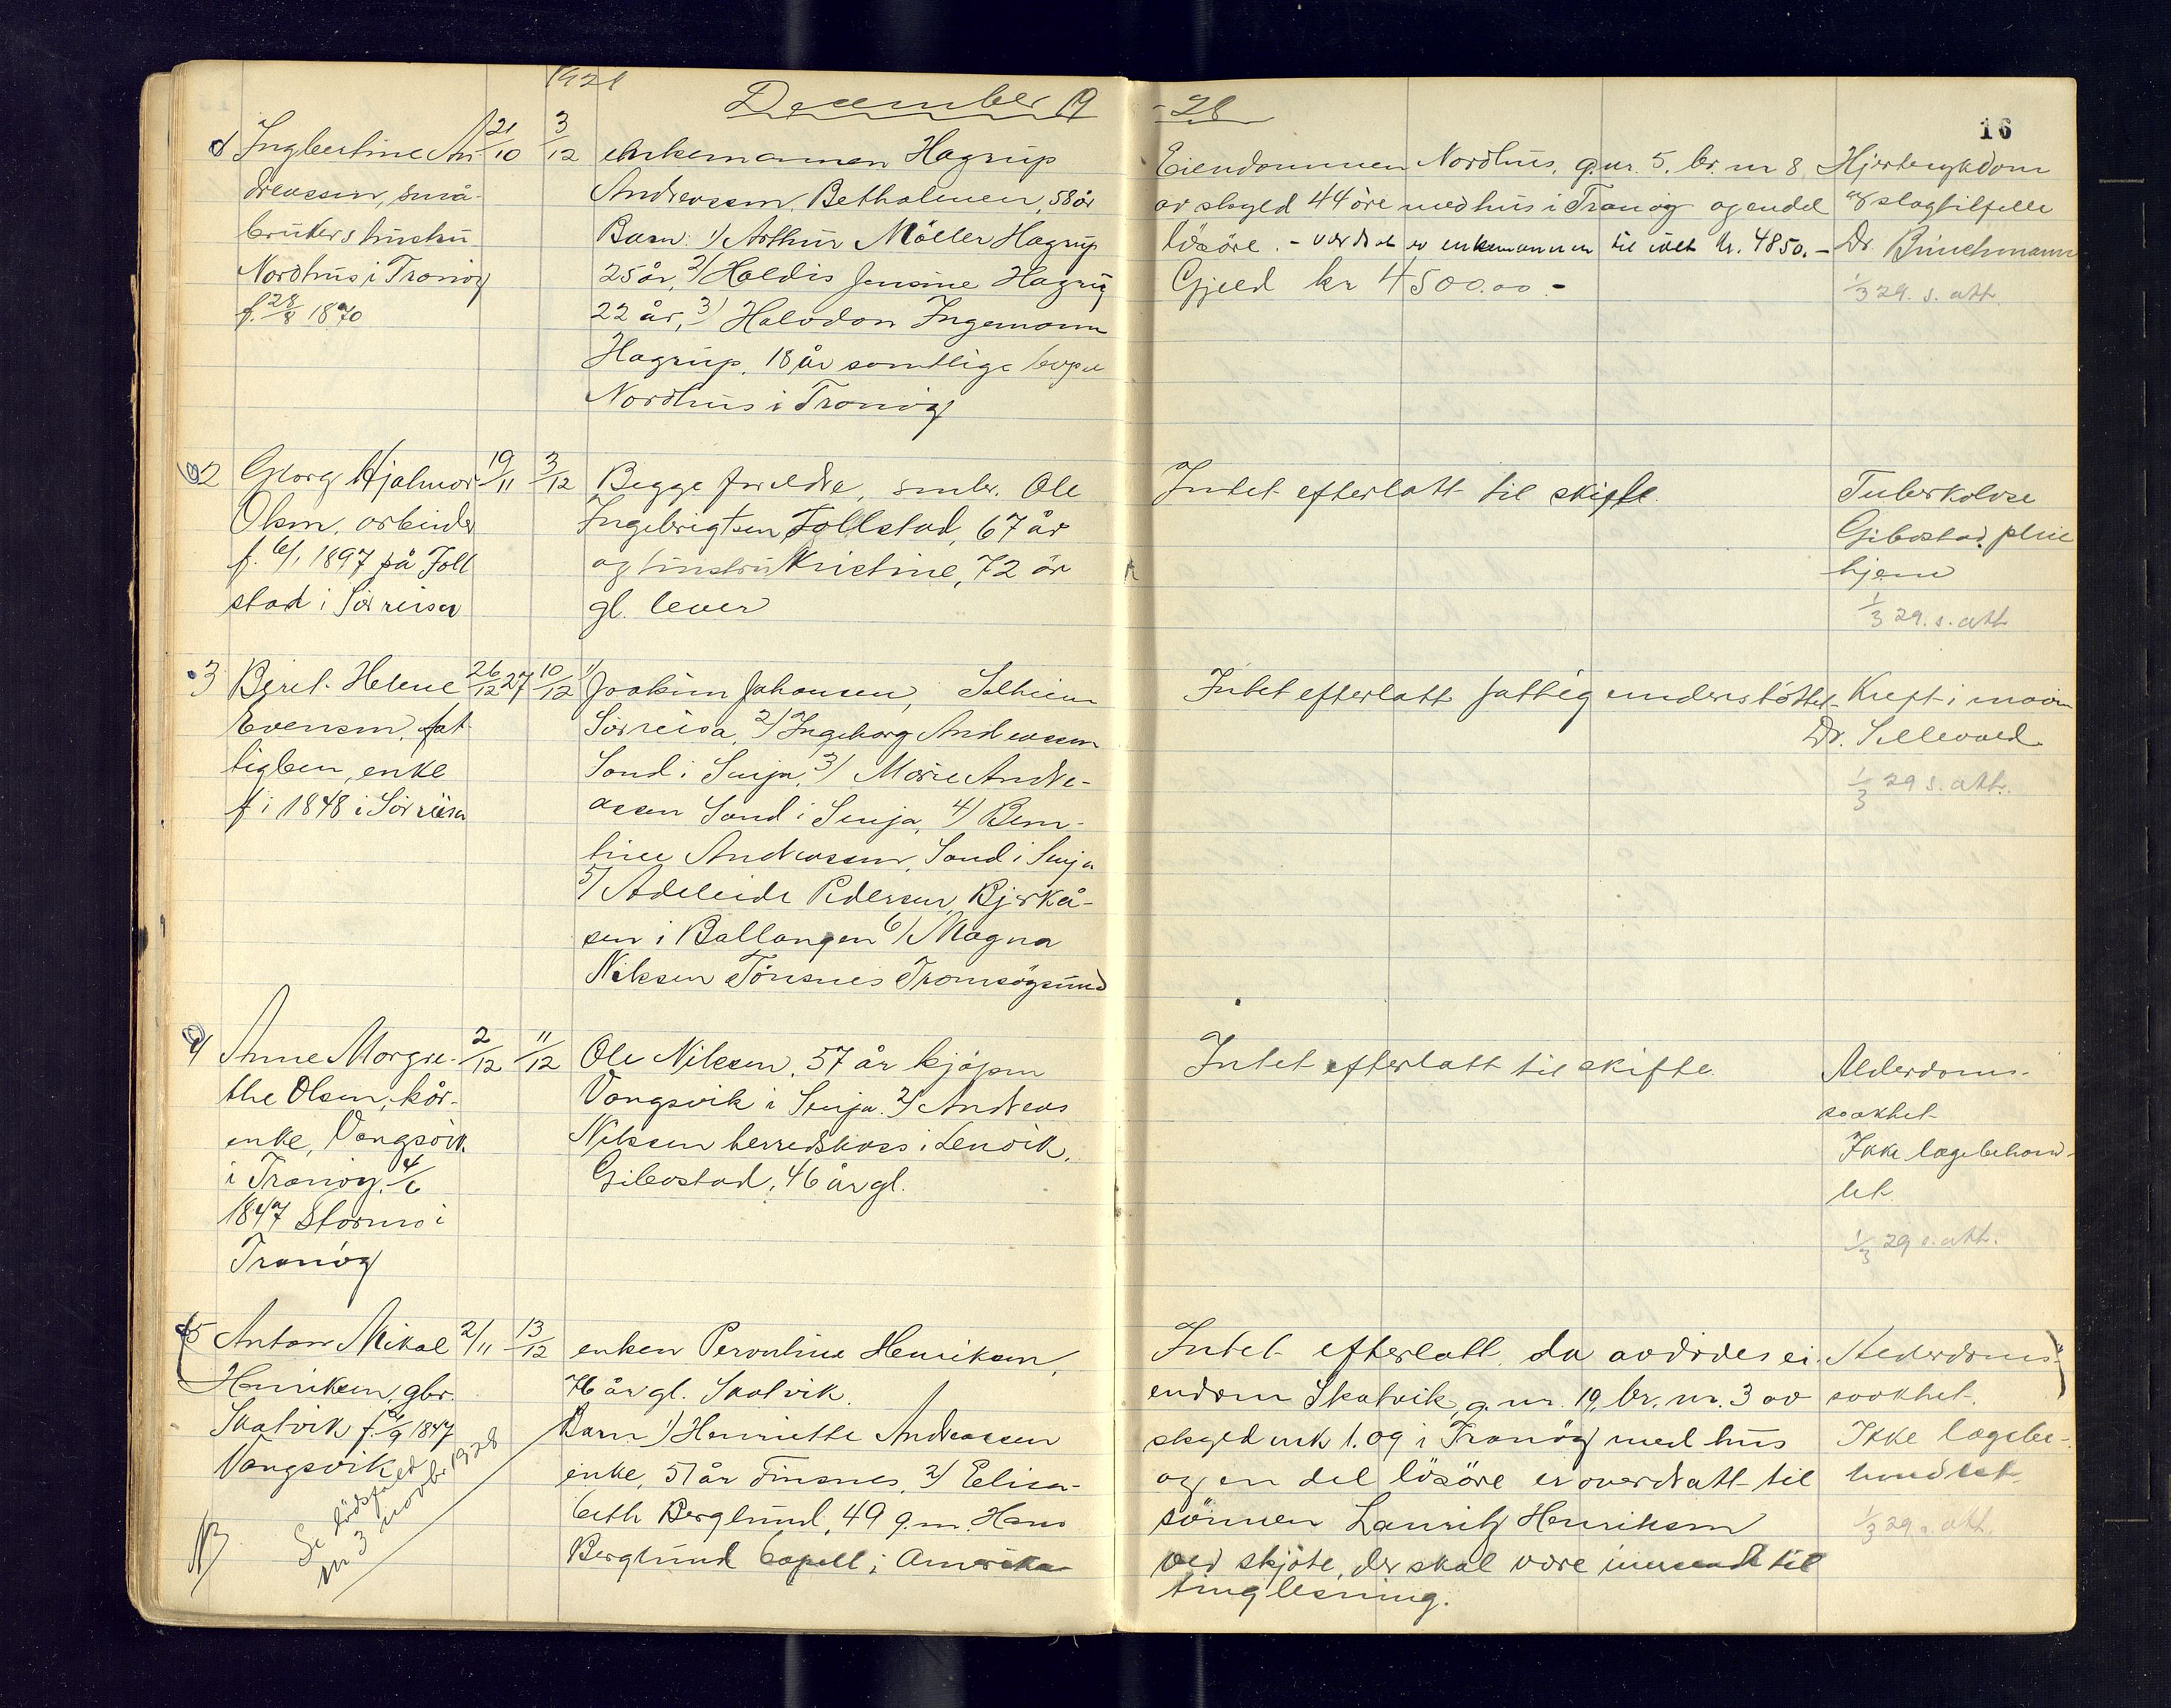 1928
December 19
-28
16
1 Ingbertine An- 21/10 3/12 enkemannen Hagrup
dreassen, små-
brukers hustru
Nordhus i Tranöy
f. 28/8 1870
Andreassen, Betholmen, 58 år
Barn: 1) Arthur Möller Hagrup
25 år, 2) Haldis Jensine Hagrup
22 år, 3) Halvdan Ingemann
Hagrup, 18 år samtlige bopæl
Nordhus i Tranöy
Eiendommen Nordhus, g.nr. 5, br. nr 8
av skyld 44 öre med hus i Tranöy og endel
lösöre. - vurdert av enkemannen til ialt kr. 4850.-
Gjeld kr 4500.00 -
Hjertesykdom
og slagtilfelle
Dr.
1/3 29. s. att.
2 Georg Hjalmar 19/11 3/12
Olsen, arbeider
f. 6/1 1897 på Foll
stad i Sörreisa
Begge foreldre, småbr. Ole
Ingebrigtsen Follstad, 67 år
og hustru Kristine, 72 år
gl. lever
Intet efterlatt til skifte.
Tuberkolose
Gibostad pleie
hjem
1/3 29. s. att
3 Beret Helene 26/12 27 10/12
Evensen, fat
tiglem, enke
f i 1848 i Sörreisa
1) Joakim Johansen, Solheim
Sörreisa, 2) Ingeborg Andreassen
Sand i Senja, 3) Marie Andre-
assen Sand i Senja, 4) Bern-
tine Andreassen, Sand i Senja
5) Adeleide Pedersen, Bjerkå-
sen i Ballangen 6) Magna
Nilsen Tönsnes Tromsöysund
Intet efterlatt fattigunderstöttet
Kreft i maven
Dr. Sellevold
1/3 29 s. att.
4 Anne Margre- 2/12 11/12
the Olsen, kår-
enke, Vangsvik
i Tranöy, 4/6
1847 Stormo i
Tranöy
Ole Nilssen, 57 år kjöpm
Vangsvik i Senja. 2) Andreas
Nilssen herredskass i Lenvik,
Gibostad, 46 år gl.
Intet efterlatt til skifte.
Alderdoms-
svakhet
Ikke lægebehand-
let.
1/3 29 s. att.
5 Anton Mikal 2/11 13/12
Henriksen, gbr.
Skatvik f. /9 1847
Vangsvik
Se dödsfald
nr 3 novbr 1928
NB
enken Pernline Henriksen,
76 år gl. Skatvik.
Barn 1) Henriette Andreassen
enke, 51 år Finsnes, 2) Elisa-
beth Berglund, 49 g.m. Hans
Berglund bopæll i Amerika
Intet efterlatt, da avdödes ei-
endom Skatvik, g. nr. 19, br. nr. 3 av
skyld mk 1.09 i Tranöy med hus
og en del lösöre er overdratt til
sönnen Lauritz Henriksen
ved skjöte, der skal være innsendt til
tinglesning.
Alderdoms-
svakhet.
Ikke lægebe-
handlet.
1/3 29 s. att.